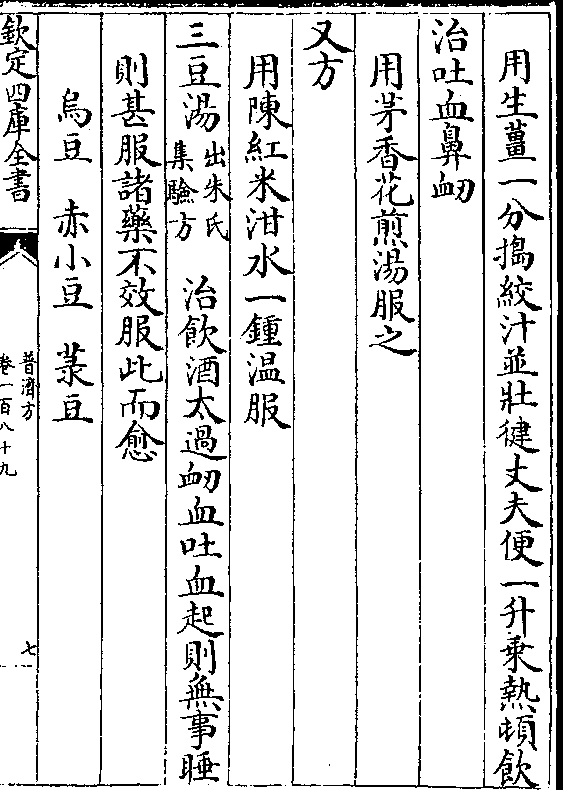 用生薑一分搗絞汁並壯健丈夫便一升乗熱頓飲
治吐血鼻衂
用茅香花煎湯服之
又方
用陳紅米泔水一鍾温服
三豆湯出朱氏集驗方 治飲酒太過衂血吐血起則無事睡
則甚服諸藥不效服此而愈
烏豆 赤小豆 菉豆
欽定四庫全書
普濟方
卷一百八十九
七